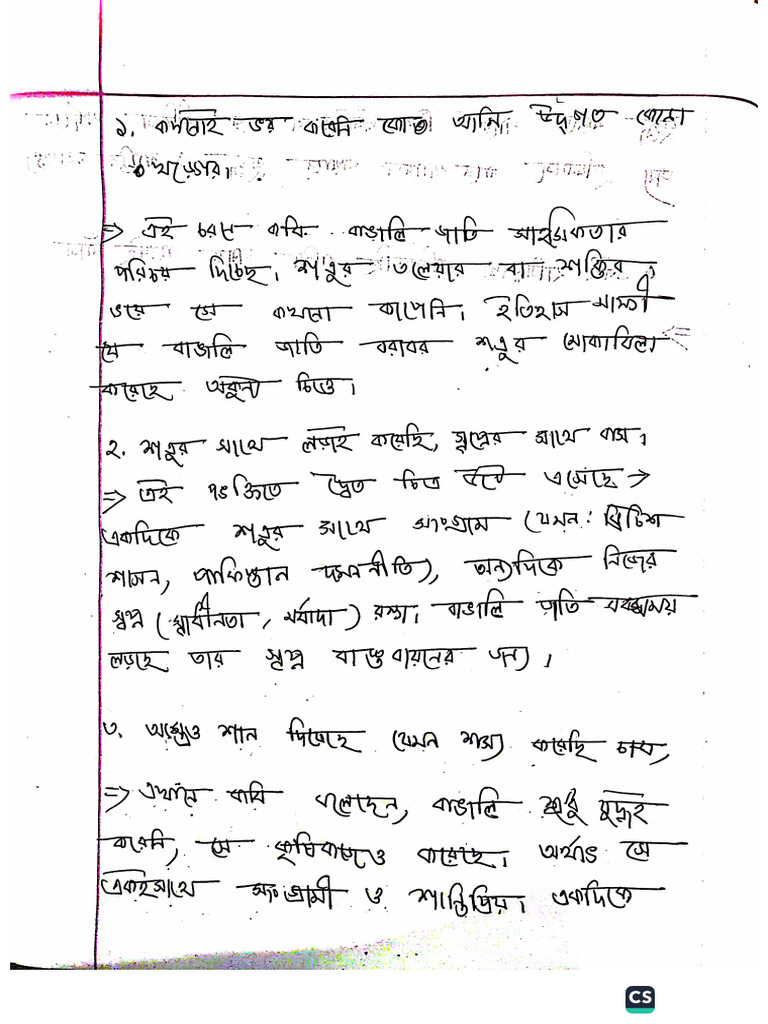 ১. কখনোই ভয় করেনি কোতো আনি উদ্ধত কোনো
খড়গের।
⇒ এই চরণে কবি বাঙালি জাতি সাহসিকতার
পরিচয় দিচ্ছে। শত্রুর তলোয়ার বা শক্তির
ভয়ে সে কখনো কাপেনি। ইতিহাস সাক্ষী
যে বাঙালি জাতি বরাবর শত্রুর মোকাবিলা
করেছে অকুন্ঠ চিত্তে।
২. শত্রুর সাথে লড়াই করেছি, স্বপ্নের সাথে বাস।
⇒ এই পংক্তিতে দ্বৈত চিত্র উঠে এসেছে →
একদিকে শত্রুর সাথে সংগ্রাম (যেমন: ব্রিটিশ
শাসন, পাকিস্তান দমননীতি), অন্যদিকে নিজের
স্বপ্ন (স্বাধীনতা, মর্যাদা) রক্ষা। বাঙালি জাতি সবসময়
লড়ছে তার স্বপ্ন বাস্তবায়নের জন্য।
৩. অস্ত্রেও শান দিয়েছে যেমন শস্য করেছি চাষ,
⇒ এখানে কবি বলেছেন, বাঙালি শুধু যুদ্ধই
করেনি, সে কৃষিকাজও করেছে। অর্থাৎ সে
একইসাথে সংগ্রামী ও শান্তিপ্রিয়। একদিকে
CS